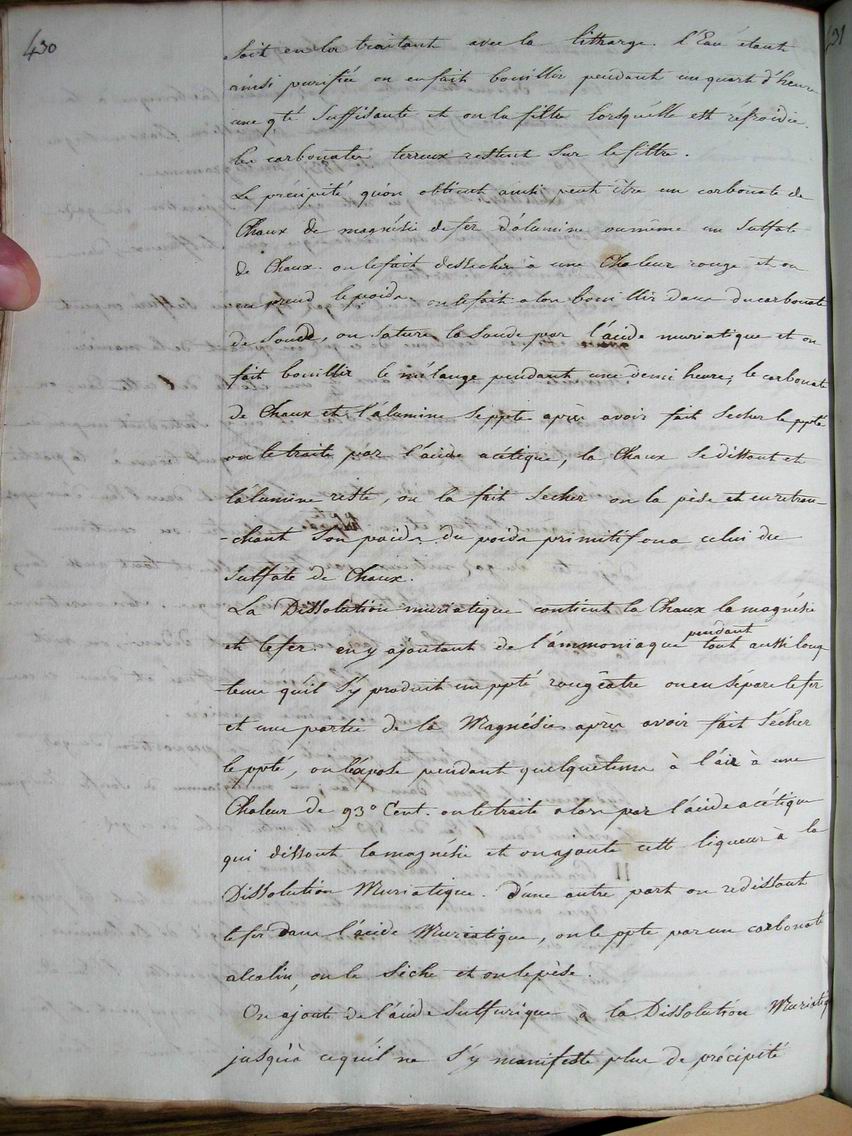 430
soit en la traitant avec la litharge. l'Eau étant
ainsi purifiée on en fait bouillir pendant un quart d'heure
une qté suffisante et on la filtre lorsqu'elle est réfroidie.
les carbonates terreux restent sur le filtre.
Le précipité qu'on obtient ainsi peut être un carbonate de
Chaux de magnésie de fer d'alumine ou même un Sulfate
de Chaux. on le fait dessécher à une Chaleur rouge et on
en prend le poids. on le fait alors bouillir dans du carbonate
de Soude, on sature la Soude par l'acide muriatique et on
fait bouillir le mélange pendant une demi heure; le carbonate
de Chaux et l'alumine se ppte après avoir fait Secher le ppté
on le traite par l'acide acétique, la Chaux se dissout et
l'alumine reste, on la fait Secher on la pèse et en retran-
-chant son poids du poids primitif on a celui du
Sulfate de Chaux.
La Dissolution muriatique contient la Chaux la magnésie
et le fer. en y ajoutant de l'ammoniaque pendant tout aussi long
tems qu'il s'y produit un ppté rougeâtre on en sépare le fer
et une partie de la Magnésie après avoir fait Sécher
le ppté, on l'expose pendant quelque tems à l'air à une
Chaleur de 93° Cent. on le traite alors par l'acide acétique
qui dissout la magnésie et on ajoute cette liqueur à la
Dissolution Muriatique. d'une autre part on redissout
le fer dans l'acide Muriatique, on le ppte par un carbonate
alcalin, on le Sèche et on le pèse.
On ajoute de l'acide Sulfurique a la Dissolution Muriatiq
jusqu'à ce qu'il ne s'y manifeste plus de précipité